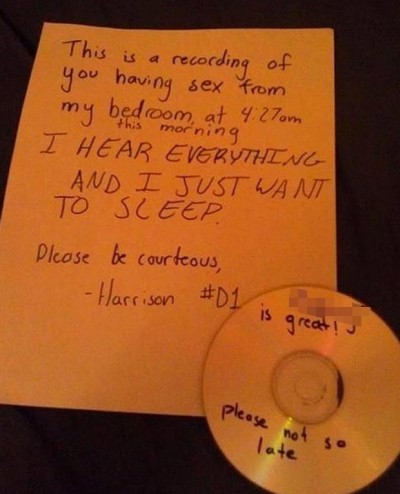 This is a recording of
you having sex from
my bedroom, at 4:27am
this morning
I HEAR EVERYTHING
AND I JUST WANT
TO SLEEP.
Please be courteous,
- Harrison #D1
is great!
please not so
late